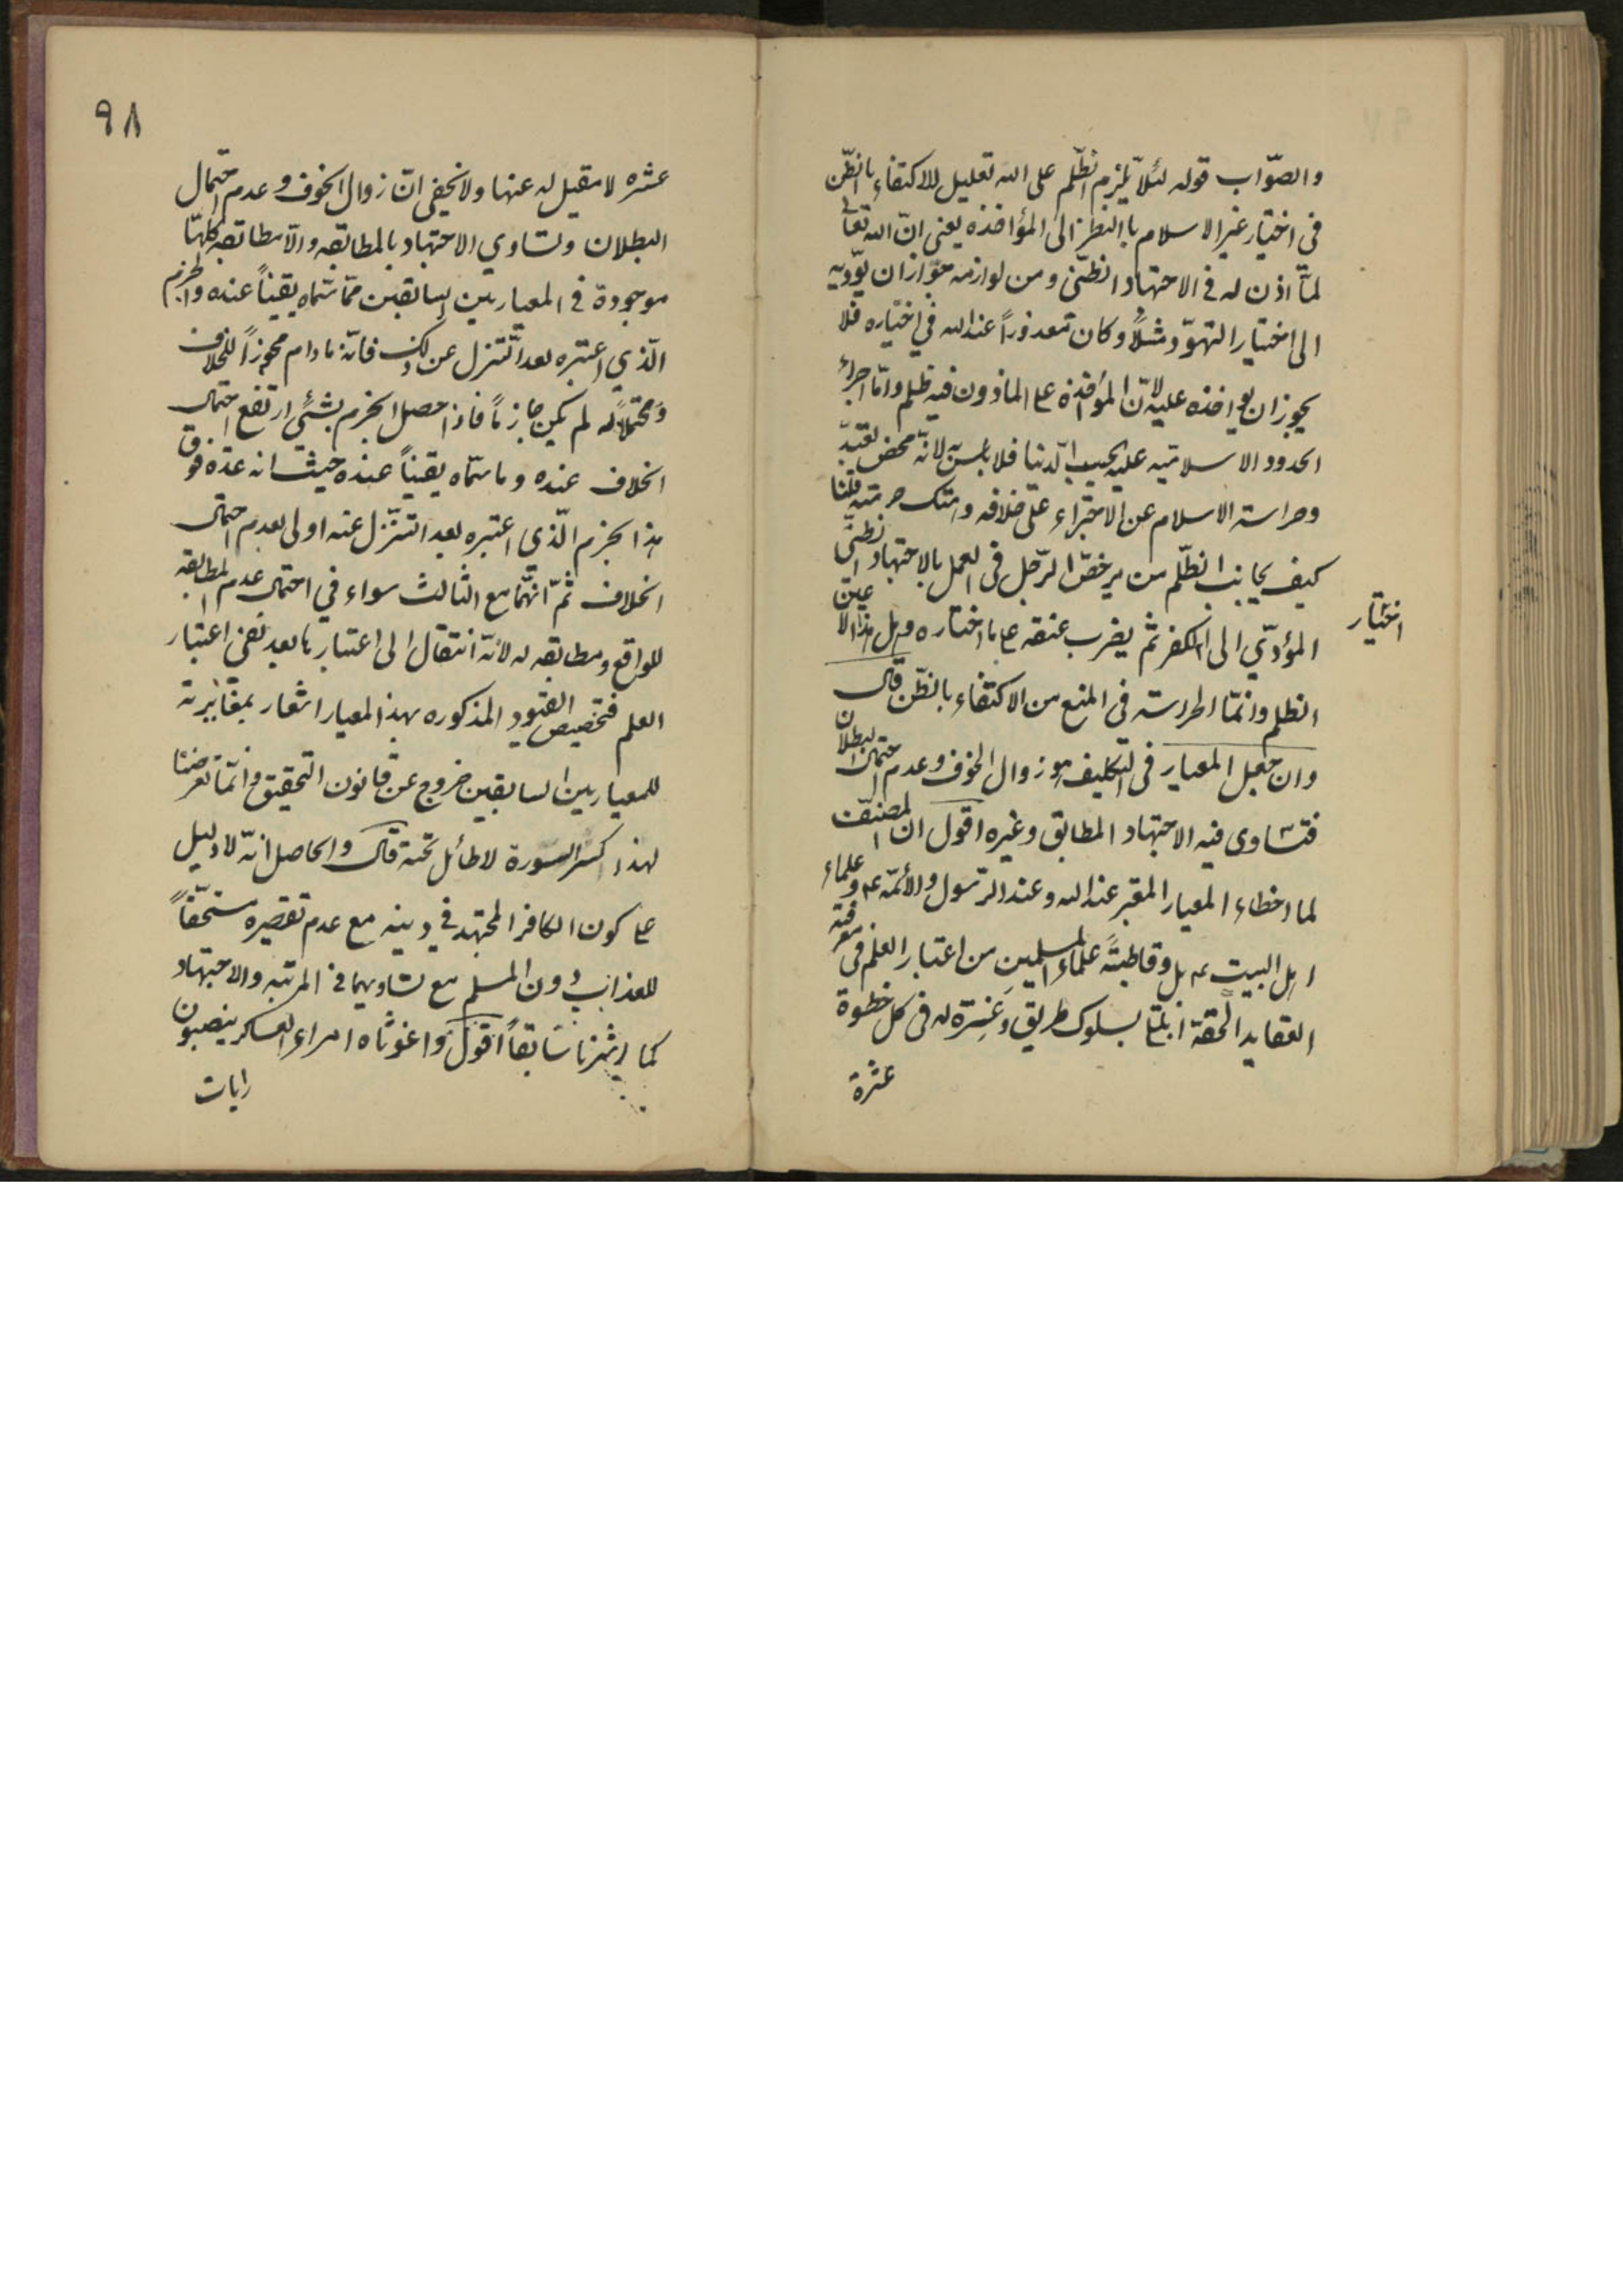 والصّواب قوله لئلاّ يلزم الظّلم على الله تعليل للاكتفاء بالظّن
فى اختيار غير الاسلام بالنظر الى المؤاخذه يعنى انّ الله تعالى
لمّا اذن له فى الاجتهاد الظنّى ومن لوازمه جواز ان يؤدّيه
الى اختيار التهوّد مثلاً وكان معذوراً عند الله فى اختياره فلا
يجوز ان يواخذه عليه لانّ المؤاخذة على الماذون فيه ظلم وامّا اجراء
الحدود الاسلاميّه عليه بحسب الدّنيا فلا باس لانّه محض تعبّد
وحراسة الاسلام عن الاجتراء على خلافه وهتك حرمته قلنا
كيف يجانب الظّلم من يرخّص الرّجل فى العمل بالاجتهاد الظنّى
المؤدّي الى الكفر ثم يضرب عنقه على ما اختاره وهل هذا الا عين
اختيار
الظلم وانّما الحراسة فى المنع من الاكتفاء بالظّن قال
وان جعل المعيار فى التكليف هو زوال الخوف وعدم احتمال البطلان
فتساوى فيه الاجتهاد المطابق وغيره اقول ان المصنّف
لما اخطاء المعيار المعتبر عند الله وعند الرّسول والأئمّه ع وعلماء
اهل البيت ع بل وقاطبةً علماء المسلمين من اعتبار العلم فى معرفة
العقايد الحقّة ابتلى بسلوك طريق وَعِرة له فى كل خطوة
عثرة
٩٨
عثره لا مقيل له عنها ولا يخفى انّ زوال الخوف وعدم احتمال
البطلان وتساوي الاجتهاد بالمطابقه واللّامطابقه كلها
موجودة فى المعيارين السابقين ممّا سمّاه يقيناً عنده والجزم
الّذي اعتبره بعد التّنزل عن ذلك فانّه مادام مجوّزاً للخلاف
ومحتملاً له لم يكن جازماً فاذا حصل الجزم بشئ ارتفع احتمال
الخلاف عنده وما سمّاه يقيناً عنده حيث انه عدّه فوق
هذا الجزم الّذي اعتبره بعد التنزّل عنه اولى بعدم احتمال
الخلاف ثمّ انّهما مع الثالث سواء في احتمال عدم المطابقه
للواقع ومطابقه له لانّه انتقال الى اعتبار ما بعد نفى اعتبار
العلم فتخصيص القيود المذكوره بهذا المعيار اشعار بمغايرته
للمعيارين السابقين خروج عن قانون التحقيق وانّما تعرضنا
لهذا كسر السورة لا طائل تحته قال والحاصل انّه لا دليل
على كون الكافر المجتهد في دينه مع عدم تقصيره مستحقّاً
للعذاب دون المسلم مع تساويهما فى المرتبه والاجتهاد
كما اشرنا سابقاً اقول واغوثاه امراء العساكر ينصبون
رايات